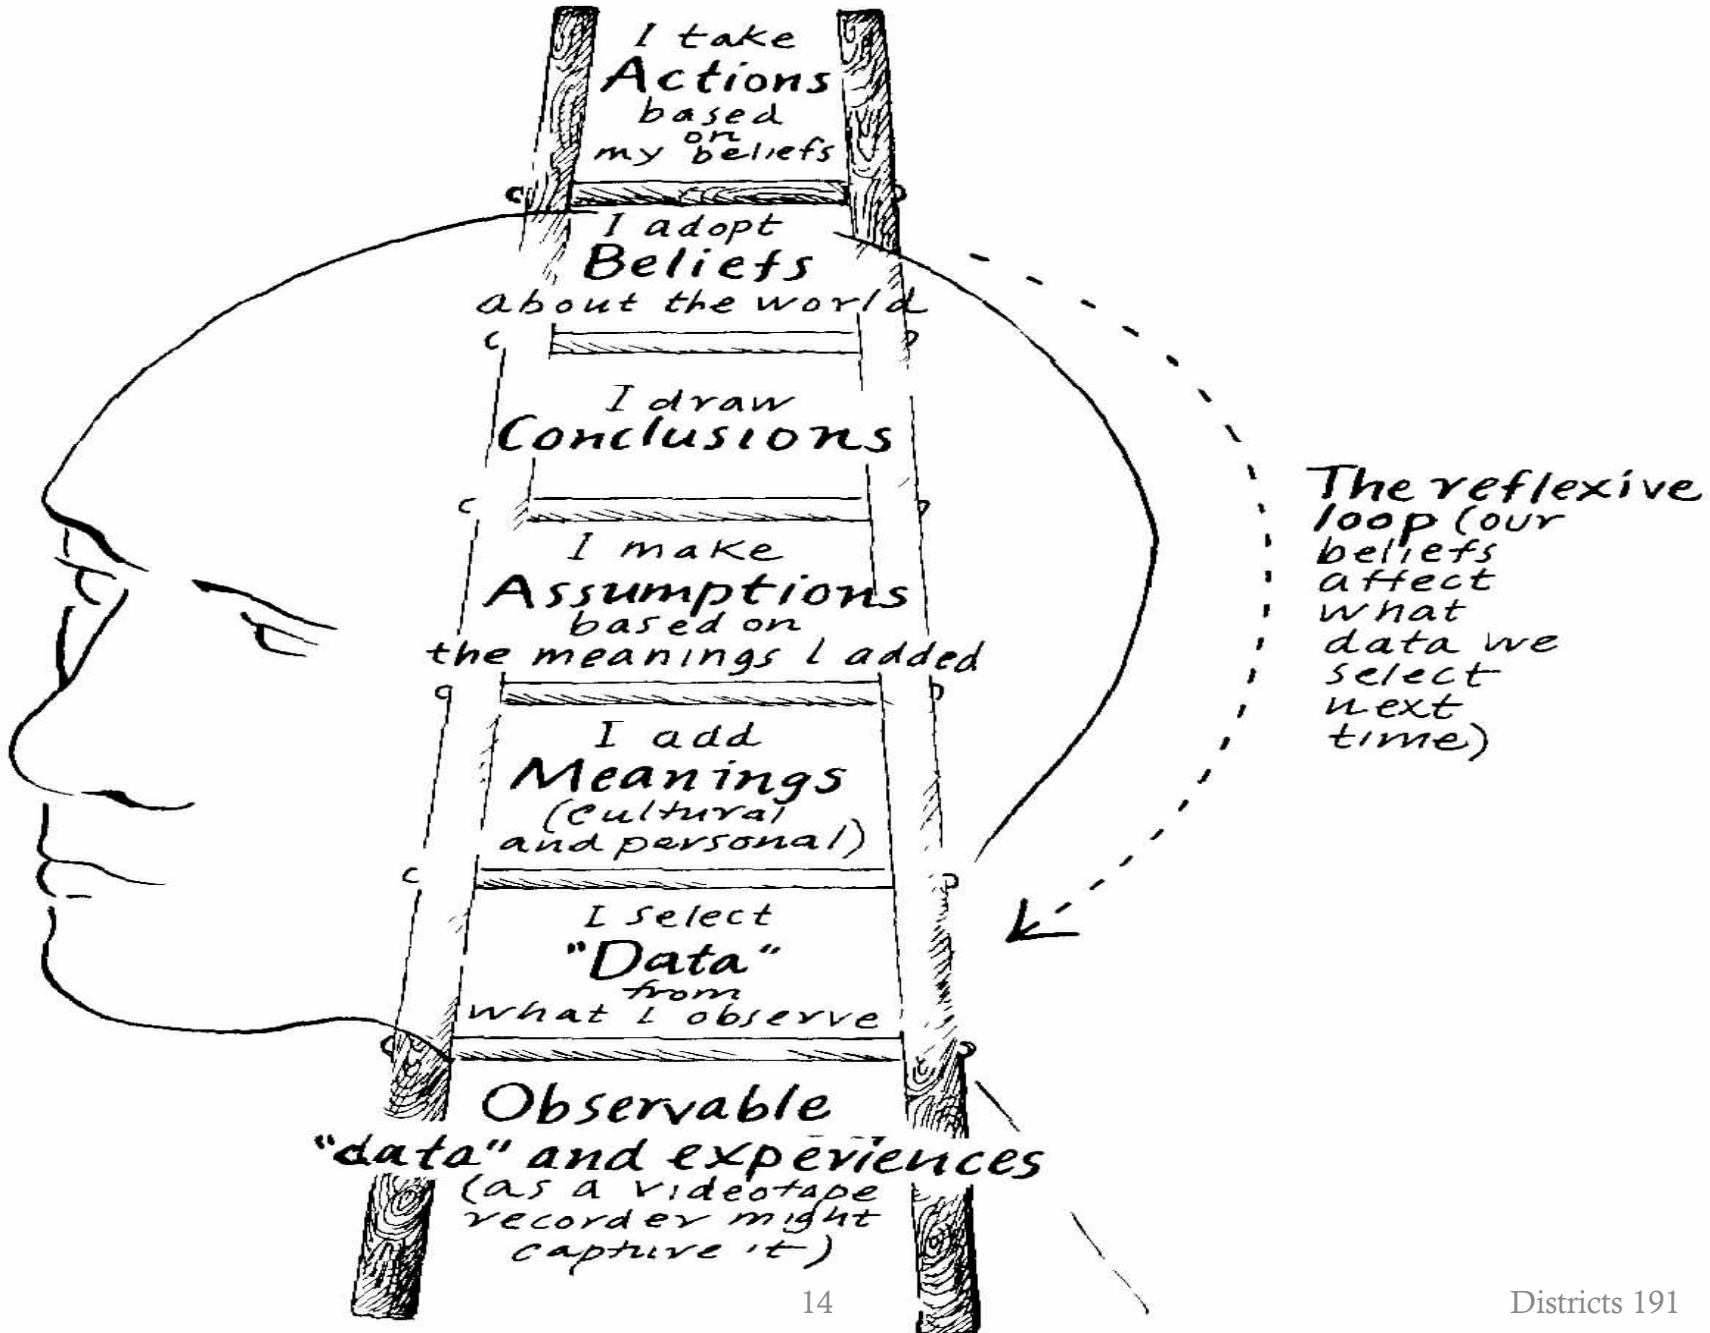 I take
Actions
based
on
my beliefs
I adopt
Beliefs
about the world
I draw
Conclusions
I make
Assumptions
based on
the meanings I added
I add
Meanings
(Cultural
and personal)
I select
"Data"
from
what I observe
Observable
"data" and experiences
(as a videotape
recorder might
capture it)
The reflexive
loop (our
beliefs
affect
what
data we
select
next
time)
14
Districts 191